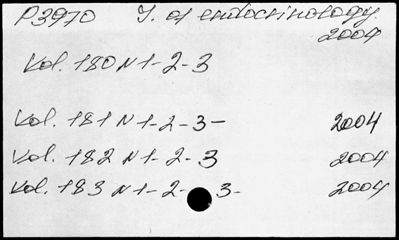 P3970 J. of endocrinology.
2004
Vol. 180 N 1-2-3
Vol. 181 N 1-2-3- 2004
Vol. 182 N 1-2-3 2004
Vol. 183 N 1-2-3- 2004